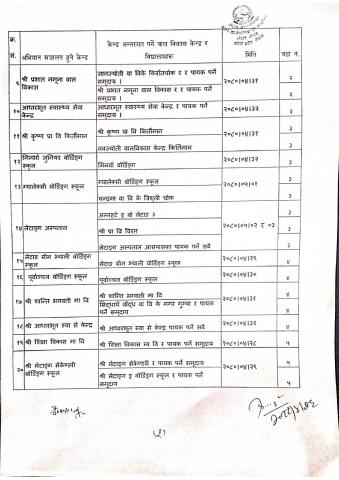 क्र.
सं.
अभियान सञ्चालन हुने केन्द्र
केन्द्र अन्तरगत पर्ने बाल विकास केन्द्र र
विद्यालयहरु
मिति
वडा नं.
९
श्री प्रभात नमूना बाल
विकास
ज्ञानज्योती बा विके किर्तिचोक र र पायक पर्ने
समुदाय ।
श्री प्रभात नमूना बाल विकास र र पायक पर्ने
समुदाय ।
२०८०।०४।३१
२
२
१०
आधारभूत स्वास्थ्य सेवा
केन्द्र
आधारभूत स्वास्थ्य सेवा केन्द्र र पायक पर्ने
समुदाय ।
२०८०।०४।३२
३
११
श्री कृष्ण प्रा वि किर्तीमान
श्री कृष्ण प्रा वि किर्तीमान
नवज्योती बालविकास केन्द्र किर्तिमान
२०८०।०४।३२
३
३
१२
मिनर्भा जुनियर बोर्डिङग
स्कूल
मिनर्भा बोर्डिङग
२०८०।०४।३२
३
१३
ग्यालेक्सी बोर्डिङग स्कूल
ग्यालेक्सी बोर्डिङग स्कूल
चन्द्रमा बा वि के त्रिशूली चोक
२०८०।०५।०१
३
३
१४
लेटाङ्ग अस्पताल
अमरहर्ट इ बो लेटाङ ३
श्री प्रा वि
लेटाङ्ग अस्पताल आसपासका पायक पर्ने सबै
२०८०।०५।०२ र ०३
३
३
३
१५
लेटाङ ग्रीन भ्याली बोर्डिङग
स्कूल
लेटाङ ग्रीन भ्याली बोर्डिङग
२०८०।०४।२९
४
१६
पूर्वाञ्चल बोर्डिङग स्कूल
पूर्वाञ्चल बोर्डिङग स्कूल
२०८०।०४।३०
४
१७
श्री शान्ति भगवती मा वि
श्री शान्ति भगवती मा वि
सिद्धार्थ बौद्ध बा वि के मगर गुम्बा र पायक
पर्ने समुदाय
२०८०।०४।३१
४
४
१८
श्री आधारभूत स्वा से केन्द्र
श्री आधारभूत स्वा से केन्द्र र पायक पर्ने सबै
२०८०।०४।३२
४
१९
श्री शिक्षा विकास मा वि
श्री शिक्षा विकास मा वि र पायक पर्ने समुदाय
२०८०।०४।२८
५
२०
श्री लेटाङ्ग सेकेण्डरी
बोर्डिङग स्कूल
श्री लेटाङ्ग सेकेण्डरी र पायक पर्ने समुदाय
श्री लेटाङ्ग इ बोर्डिङग स्कूल र पायक पर्ने
समुदाय
२०८०।०४।२९
५
५